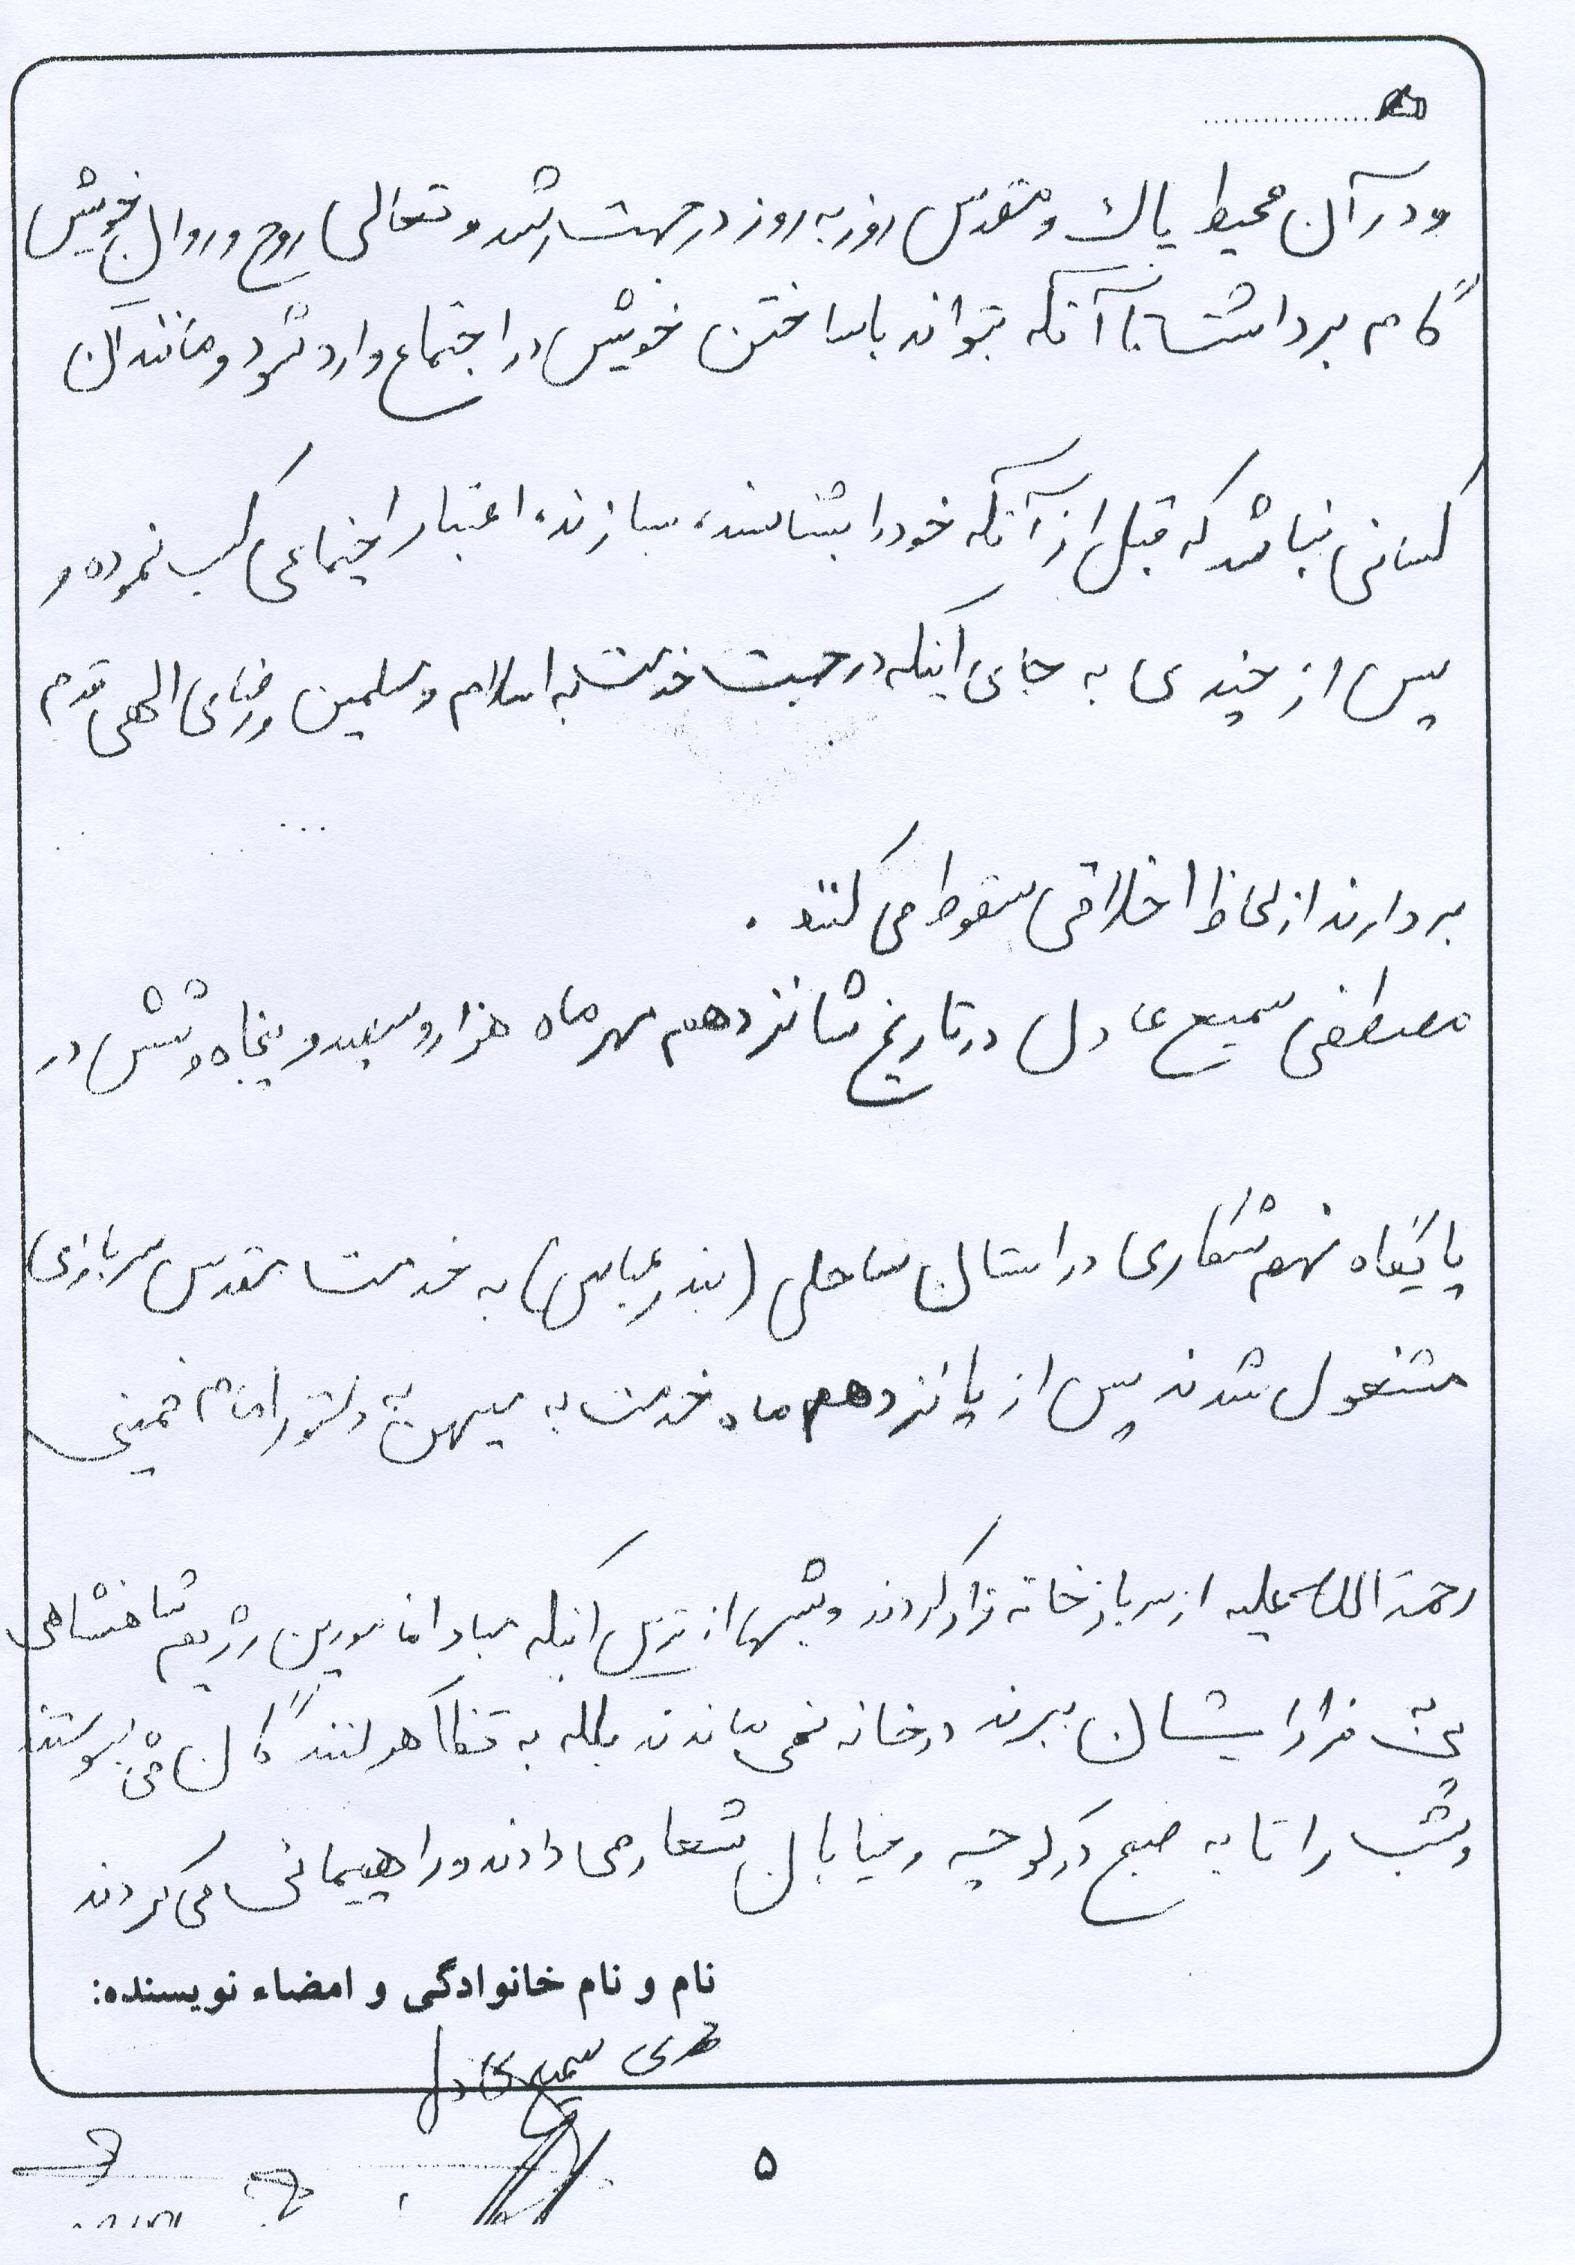 و در آن محیط پاک و مقدس روز به روز در جهت رشد و تعالی روح و روان خویش
گام برداشت تا آنکه بتواند با ساختن خویش در اجتماع وارد شود و مانند آن
کسانی نباشد که قبل از آنکه خود را بشناسند، بسازند، اعتبار اجتماعی کسب نموده و
پس از چندی به جای اینکه در جهت خدمت به اسلام و مسلمین و رضای الهی قدم
بردارند از لحاظ اخلاقی سقوط می کنند .
مصطفی سمیع عادل در تاریخ شانزدهم مهرماه هزار و سیصد و پنجاه و شش در
پایگاه نهم شکاری در استان ساحلی (بندرعباس) به خدمت مقدس سربازی
مشغول شدند پس از پانزدهم ماه خدمت به میهن به دستور امام خمینی
رحمة الله علیه از سربازخانه فرار کردند و شبها از ترس اینکه مبادا مامورین رژیم شاهنشاهی
پی به فرار ایشان ببرند در خانه نمی ماندند بلکه به تظاهرکنندگان می پیوستند
و شب را تا به صبح در کوچه و خیابان شعار می دادند و راهپیمائی می کردند
نام و نام خانوادگی و امضاء نویسنده:
سمیع عادل
۵